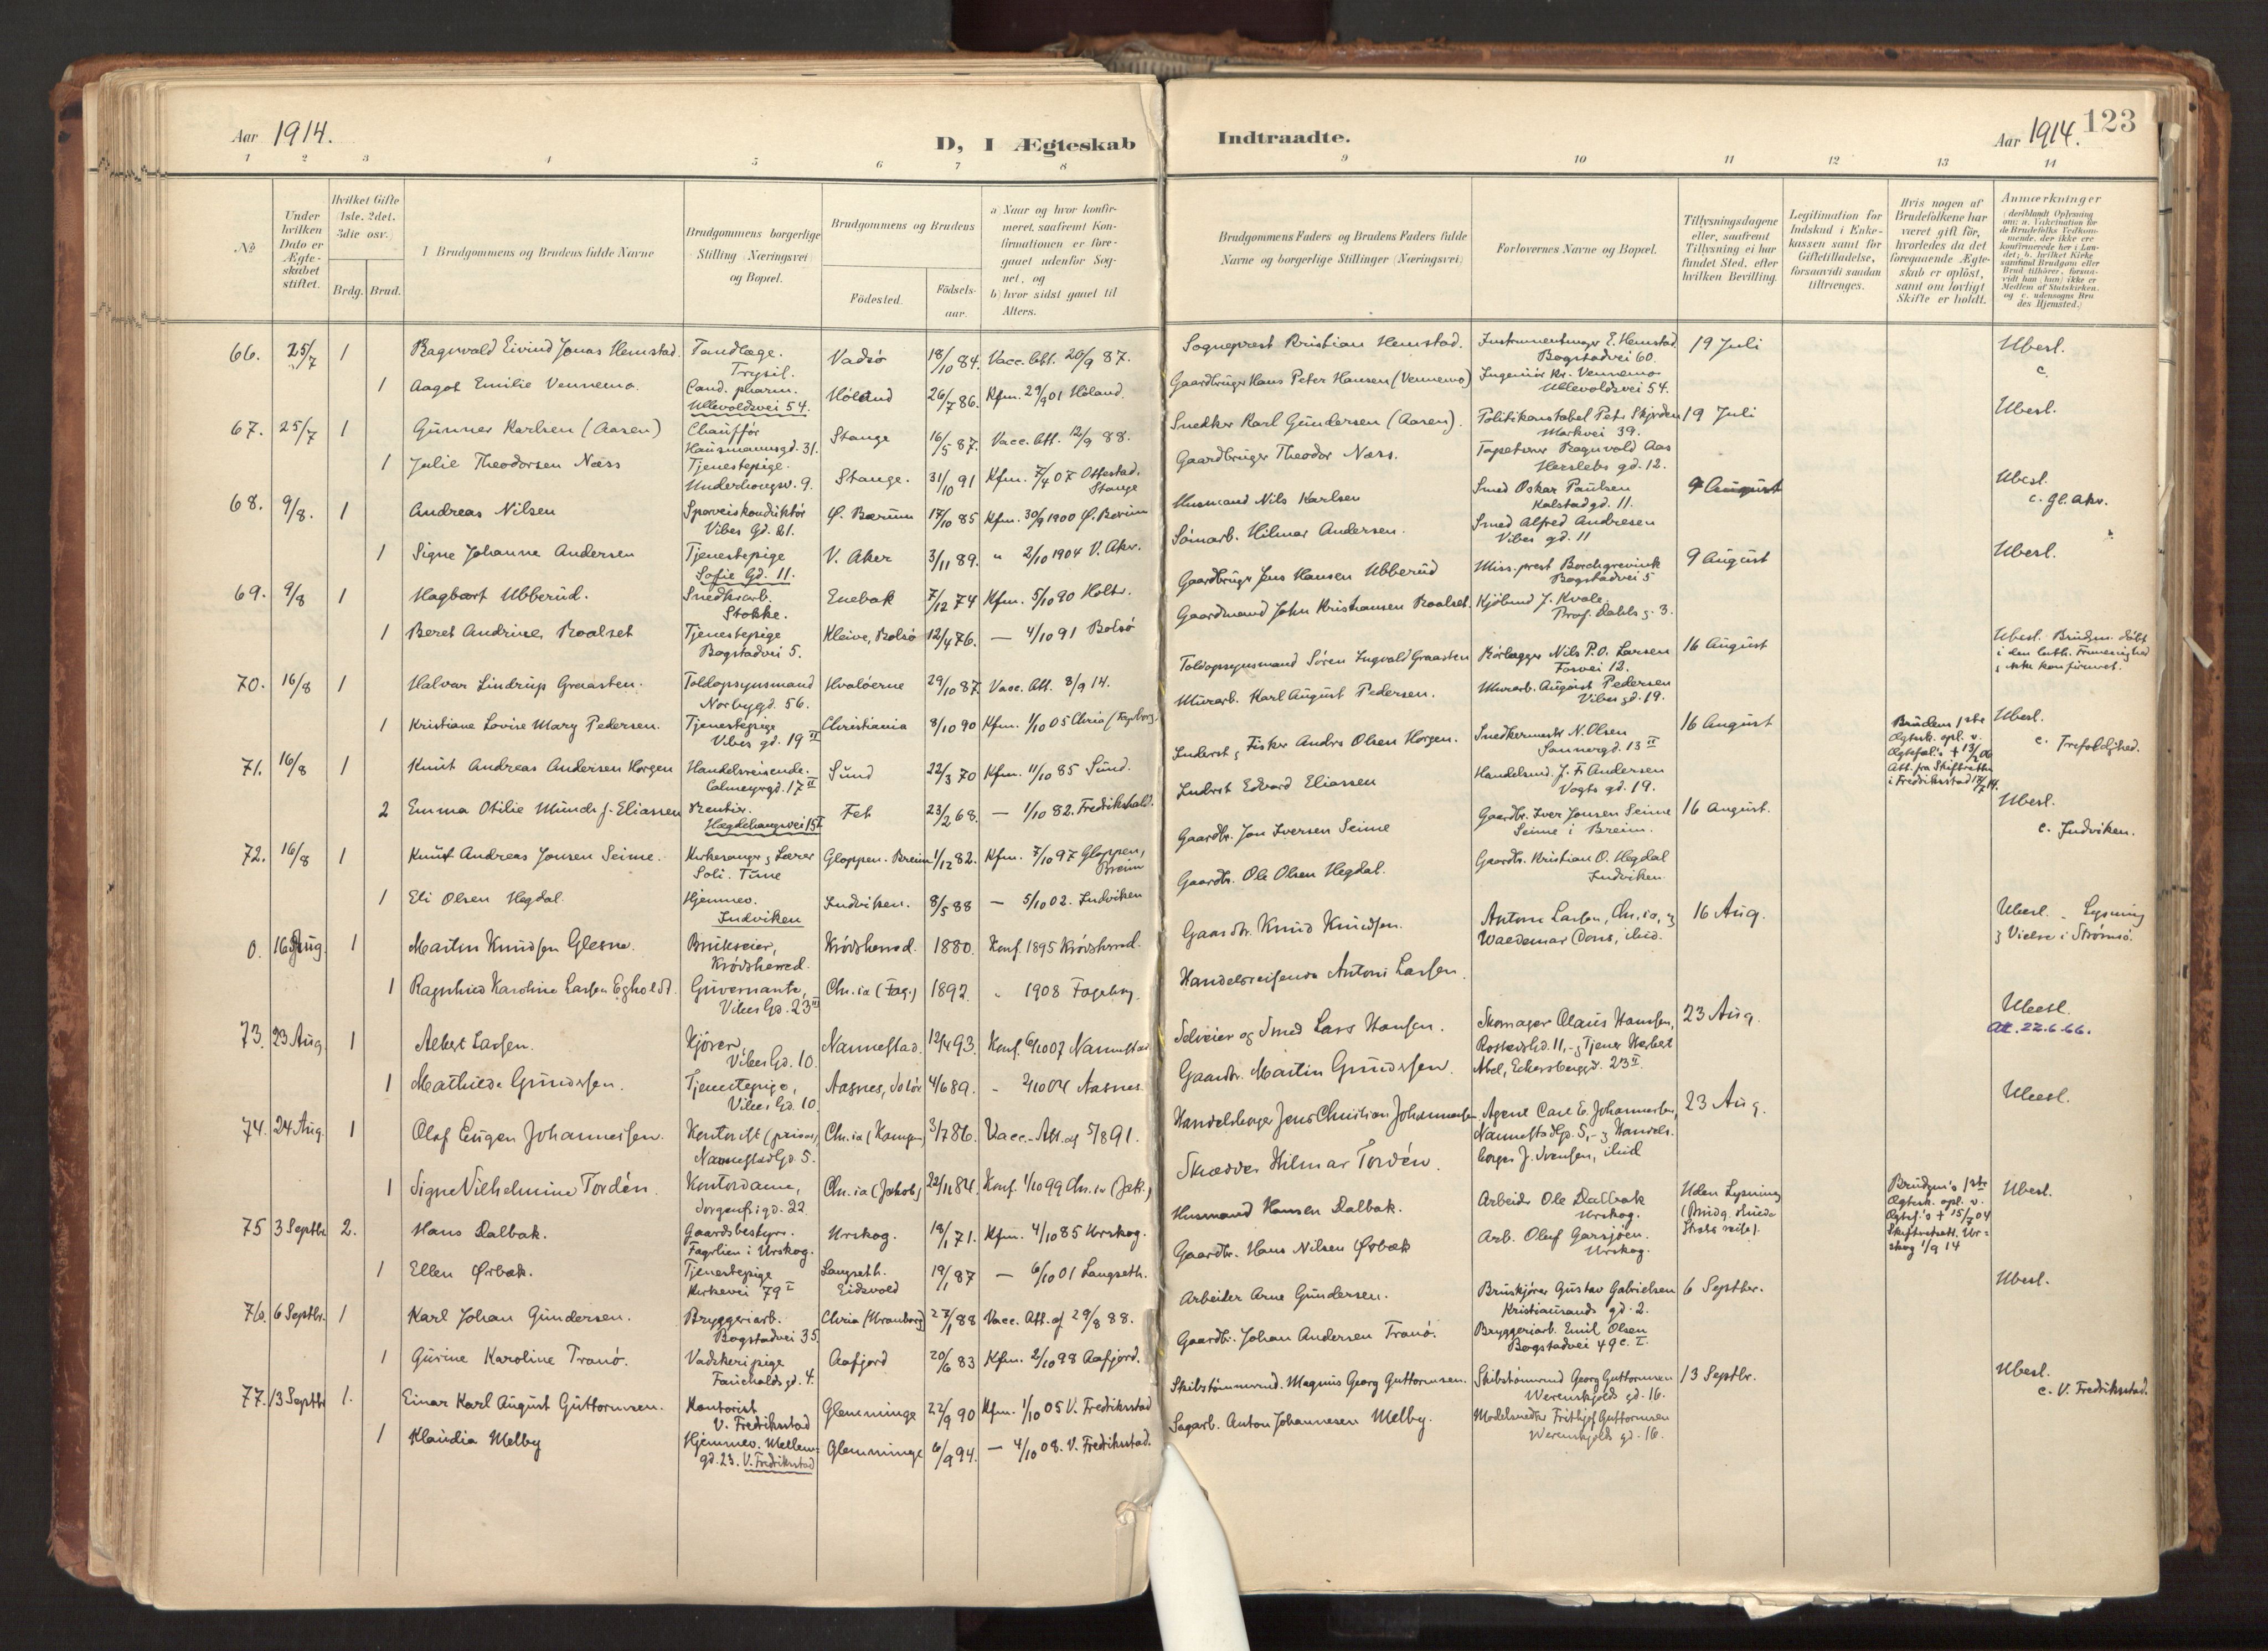 Aar 1914.
D, I Ægteskab Indtraadte.
Aar 1914. 123
1 2 3 4 5 6 7 8 9 10 11 12 13 14
№
Under hvilken Dato er Ægteskabet stiftet.
Hvilket Gifte (1ste, 2det, 3die osv.)
Brdg. Brud.
Brudgommens og Brudens fulde Navne
Brudgommens borgerlige Stilling (Næringsvei) og Bopæl.
Brudgommens og Brudens
Födested.
Födsels-aar.
a) Naar og hvor konfirmeret, saafremt Konfirmationen er foregaaet udenfor Sognet, og
b) hvor sidst gaaet til Alters.
Brudgommens Faders og Brudens Faders fulde Navne og borgerlige Stillinger (Næringsvei)
Forlovernes Navne og Bopæl.
Tillysningsdagene eller, saafremt Tillysning ei har fundet Sted, efter hvilken Bevilling.
Legitimation for Indskud i Enkekassen samt for Giftetilladelse, forsaavidt saadan tiltrænges.
Hvis nogen af Brudefolkene har været gift för, hvorledes da det foregaaende Ægteskab er oplöst, samt om lovligt Skifte er holdt.
Anmærkninger
66. 25/7 1 Ragnvald Eivind Jonas Hemstad. Tandlæge. Trysil. Vadsö 18/10 84. Vacc. Att. 20/9 87. Sogneprest Kristian Hemstad. Instrumentmager E. Hemstad Bogstadvei 60. 19 Juli Ubesl.
1 Aagot Emilie Vennemo. Cand. pharm. Ullevoldsvei 54. Höland 26/7 86. Kfm. 29/9 01 Höland. Gaardbruger Hans Peter Hansen (Vennemo) Ingeniör Kr. Vennemo Ullevoldsvei 54. c.
67. 25/7 1 Gunnar Karlsen (Aasen) Chaufför Hausmannsgd. 31. Stange 16/5 87. Vacc. Att. 12/9 88. Snedker Karl Gundersen (Aasen). Politikonstabel Petr Skjorden Markvei 39. 19 Juli Ubesl.
1 Julie Theodorsen Næss Tjenestepige. Underhaugsv. 9. Stange. 31/10 91 Kfm. 7/4 07 Ottestad. Stange Gaardbruger Theodor Næss. Tapetserer Ragnvald Aas Herslebs gd. 12.
68. 9/8. 1 Andreas Nilsen Sporveiskonduktör Vibes Gd. 21. Ø. Bærum 17/10 85 Kfm. 30/9 1900 Ø. Bærum Husmand Nils Karlsen Smed Oskar Paulsen Kalstadgd. 11. 9 August Ubesl. c. Gl. Aker.
1 Signe Johanne Andersen Tjenestepige Sofie Gd. 11. V. Aker 3/11 89. " 2/10 1904 V. Aker. Sömarb. Hilmar Andersen. Smed Alfred Andresen Vibes gd. 11
69. 9/8 1 Hagbart Ubberud. Snedkerarb. Stokke. Enebak 7/12 74 Kfm. 5/10 90 Holter. Gaardbruger Jens Hansen Ubberud Miss.prest Borchgrevink Bogstadvei 5 9 August Ubesl.
1 Beret Andrine Roalset Tjenestepige Bogstadvei 5. Kleive, Bolsö 12/4 76. — 4/10 91 Bolsö Gaardmand John Kristiansen Roalset. Kjöbmd J. Kvale. Prof. Dahls g. 3.
70. 16/8 1 Halvar Lindrup Graasten. Toldopsynsmand Norbygd. 56. Hvalöerne 29/10 87. Vacc. Att. 8/9 14. Toldopsynsmand Sören Ingvald Graasten Rörlægger Nils P.O. Larsen Fosvei 12. 16 August Ubesl. Brudgm. döbt i den luth. Frimenighed, ikke konfirmeret.
1 Kristiane Lovise Mary Pedersen. Tjenestepige Vibes gd. 19 II Christiania 8/10 90 Kfm. 1/10 05 Chria (Fagerborg) Murarb. Karl August Pedersen. Murarb. August Pedersen Vibes gd. 19.
71. 16/8 1 Knut Andreas Andersen Horgen Handelsreisende. Calmeyergd. 17 II Sund 22/3 70 Kfm. 11/10 85 Sund. Inderst, Fisker Anders Olsen Horgen. Snedkermestr N. Olsen Sannergd. 13 II 16 August Brudens 1ste Ægtesk. opl. v. Ægtefæl.'s † 13/2 06 Att. fra Skifteretten i Fredriksstad 17/7 14. Ubesl. c. Trefoldighed.
2 Emma Otilie Münch f. Eliassen Rentier. Hægdehaugsvei 15 I Fet 23/2 68. — 1/10 82. Fredrikshald. Inderst Edvard Eliassen Handelsmd. J. F. Andersen Vogts gd. 19.
72. 16/8 1 Knut Andreas Jonsen Seime. Kirkesanger & Lærer Soli. Tune Gloppen. Breim 1/12 82. Kfm. 7/10 97 Gloppen, Breim Gaardbr. Jon Iversen Seime Gaardbr. Iver Jonsen Seime Seime i Breim. 16 August. Ubesl. c. Indviken.
1 Eli Olsen Hegdal. Hjemmev. Indviken Indviken. 8/5 88 — 5/10 02. Indviken Gaardbr. Ole Olsen Hegdal. Gaardbr. Kristian O. Hegdal Indviken.
0. 16 Aug. 1 Martin Knudsen Glesne. Brukseier, Krödsherred. Krödsherred. 1880. Konf. 1895 Krödsherred. Gaardbr. Knud Knudsen. Anton Larsen, Chr.ia, & Waldemar Dons, ibid. 16 Aug. Ubesl. - Lysning & Vielse i Strömsö.
1 Ragnhild Karoline Larsen Egholdt. Guvernante, Vibes Gd. 23 III Chr.ia (Fag.) 1892. " 1908 Fagerborg. Handelsreisende Antoni Larsen.
73. 23 Aug. 1 Albert Larsen. Kjörer, Vibes Gd. 10. Nannestad. 12/4 93. Konf. 6/10 07 Nannestad Selveier og Smed Lars Hansen. Skomager Olaus Hansen, Rosteds Gd. 11, - & Tjener Herbert Abel, Eckersberggd. 23 II. 23 Aug. Ubesl. Att. 22.6.66.
1 Mathilde Gundersen. Tjenestepige, Vibes Gd. 10. Aasnes, Solör 4/6 89. " 2/10 04 Aasnes. Gaardbr. Martin Gundersen.
74. 24 Aug. 1 Olaf Eugen Johannessen. Kontorist (privat) Nannestad Gd. 5. Chr.ia (Kampen) 3/7 86. Vacc.-Att. af 5/8 91. Handelsborger Jens Christian Johannessen Agent Carl E. Johannessen, Nannestad Gd. 5, - & Handelsborger J. Svensen, ibid 23 Aug. Ubesl.
1 Signe Vilhelmine Tordén. Kontordame, Sorgenfrigd. 22 Chr.ia (Jakob) 22/11 84. Konf. 1/10 99 Chr.ia (Jak.) Skrædder Hilmar Tordén.
75 3 Septbr 2. Hans Dalbak. Gaardsbestyrer. Fagerlien i Urskog. Urskog. 18/1 71. Kfm. 4/10 85 Urskog. Husmand Hansen Dalbak. Arbeider Ole Dalbak Urskog. Uden Lysning (Brudg. skulde straks reise). Brudgm's 1ste Ægtesk. opl. v. Ægtef.'s † 15/7 04 Skifteretsatt. Urskog 1/9 14 Ubesl.
1 Ellen Ørbak. Tjenestepige Kirkevei 79 I Langseth. Eidsvold 19/1 87 — 6/10 01 Langseth. Gaardbr. Hans Nilsen Ørbak Arb. Oluf Garsjöen. Urskog.
76. 6 Septbr. 1 Karl Johan Gundersen. Bryggeriarb. Bogstadvei 35. Chria (Uranienborg) 27/1 88 Vacc. Att. af 29/8 88. Arbeider Arne Gundersen. Bruskjörer Gustav Gabrielsen Kristiansands gd. 2. 6 Septber. Ubesl.
1 Gurine Karoline Tranö. Vadskeripige Fauchalds gd. 4. Aafjord 20/6 83 Kfm. 2/10 98 Aafjord. Gaardbr. Johan Andersen Tranö. Bryggeriarb. Emil Olsen Bogstadvei 49 c. I.
77. 13 Septbr 1. Einar Karl August Guttormsen. Kontorist V. Fredriksstad Glemminge 22/9 90 Kfm. 1/10 05 V. Fredriksstad Skibstömmermd. Magnus Georg Guttormsen. Skibstömmermd Georg Guttormsen Werenskjolds gd. 16. 13 Septbr. Ubesl. c. V. Fredriksstad.
1 Klaudia Melby Hjemmev. Mellemgd. 23. V. Fredriksstad Glemminge 6/9 94. — 4/10 08. V. Fredriksstad. Sagarb. Anton Johannesen Melby. Modelsnedker Frithjof Guttormsen Werenskjolds gd. 16.